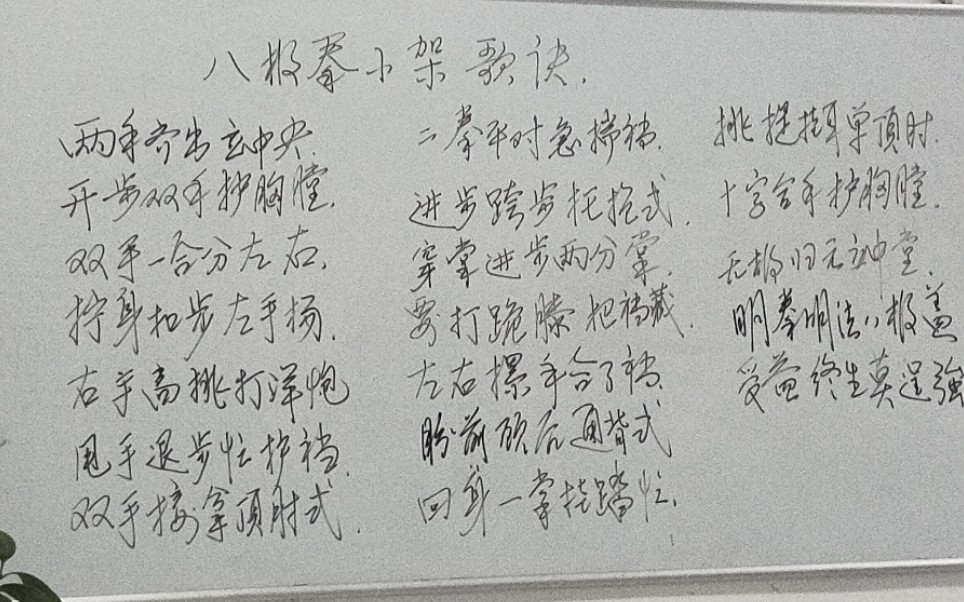 八极拳小架歌诀.
两手齐出立中央.
开步双手护胸膛.
双手一合分左右.
拧身扣步左手扬.
右手高挑打洋炮
甩手退步忙护裆.
双手接拿顶肘式.
二拳平对急撩裆.
进步跨步托抢式.
穿掌进步两分掌.
要打跪膝把裆藏.
左右摞手合了裆.
盼前顾后通背式
回身一掌挠踏忙.
挑提掛耳单顶肘.
十字合手护胸膛.
无极归元立中堂.
明拳明法八极盖
受益终生莫逞強